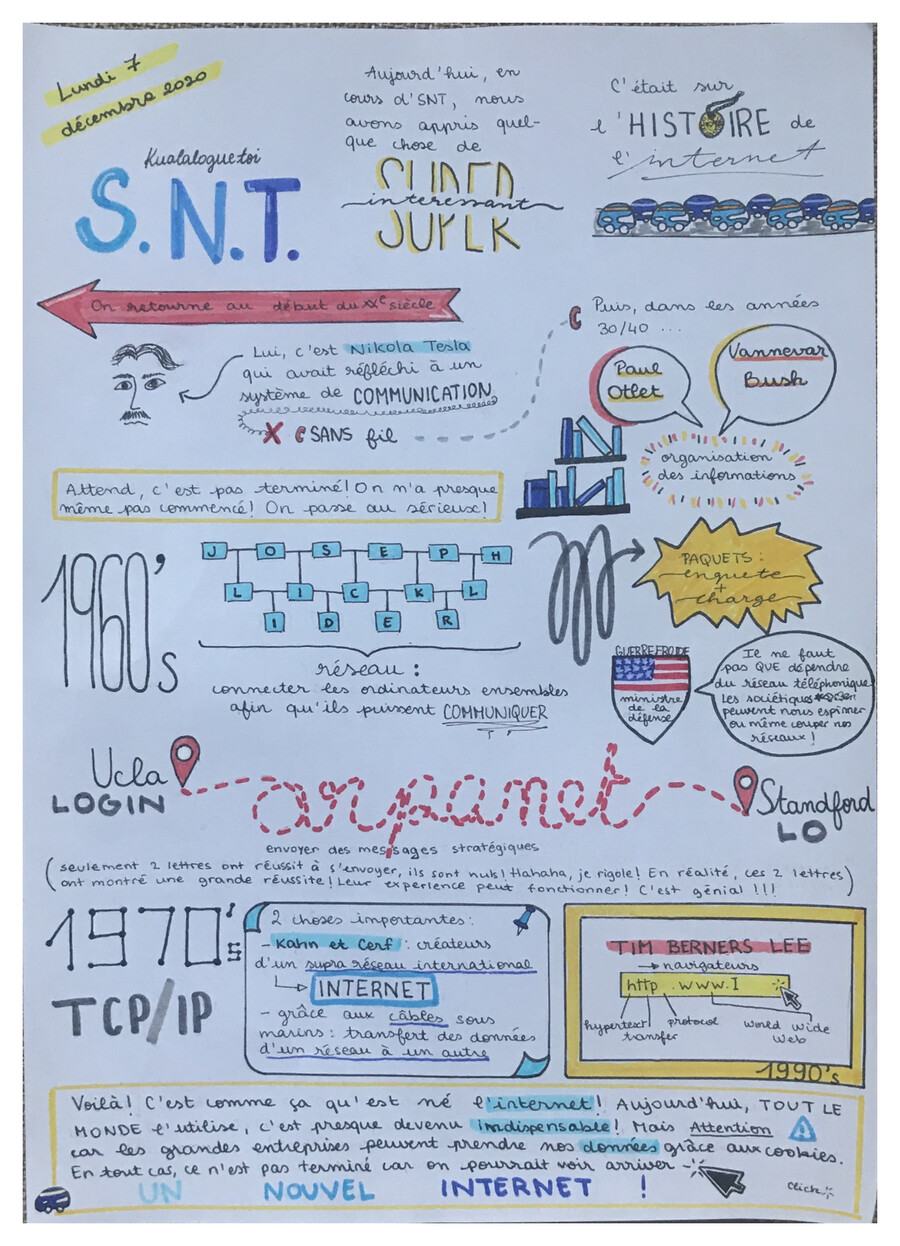 Lundi 7
décembre 2020
Kualaloguetoi
S.N.T.
Aujourd'hui, en
cours d'SNT, nous
avons appris quel-
que chose de
SUPER
interessant
SUPER
C'était sur
l'HISTOIRE de
l'internet
On retourne au début du XXe siècle
Lui, c'est Nikola Tesla
qui avait réfléchi à un
système de COMMUNICATION
SANS fil
Puis, dans les années
30/40 ...
Paul
Otlet
Vannevar
Bush
organisation
des informations
Attend, c'est pas terminé! On n'a presque
même pas commencé! On passe au sérieux!
1960's
J O S E P H
L I C K L
I D E R
réseau :
connecter les ordinateurs ensembles
afin qu'ils puissent COMMUNIQUER
PAQUETS :
enquete
+
charge
GUERRE FROIDE
ministre
de la
défense
Il ne faut
pas QUE dépendre
du réseau téléphonique
Les sociétiques
peuvent nous espinner
ou même couper nos
réseaux !
Ucla
LOGIN
arpanet
Standford
LO
envoyer des messages stratégiques
(seulement 2 lettres ont réussit à s'envoyer, ils sont nuls! Hahaha, je rigole! En réalité, ces 2 lettres
ont montré une grande réussite! Leur experience peut fonctionner! C'est génial !!!)
1970's
TCP/IP
2 choses importantes:
- Kahn et Cerf : créateurs
d'un supra réseau international
INTERNET
- grâce aux câbles sous
marins : transfert des données
d'un réseau à un autre
TIM BERNERS LEE
→ navigateurs
http .www.I
hypertext
transfer
protocol
world wide
web
1990's
Voilà! C'est comme ça qu'est né l'internet! Aujourd'hui, TOUT LE
MONDE l'utilise, c'est presque devenu indispensable! Mais Attention
car les grandes entreprises peuvent prendre nos données grâce aux cookies.
En tout cas, ce n'est pas terminé car on pourrait voir arriver
UN NOUVEL INTERNET !
click